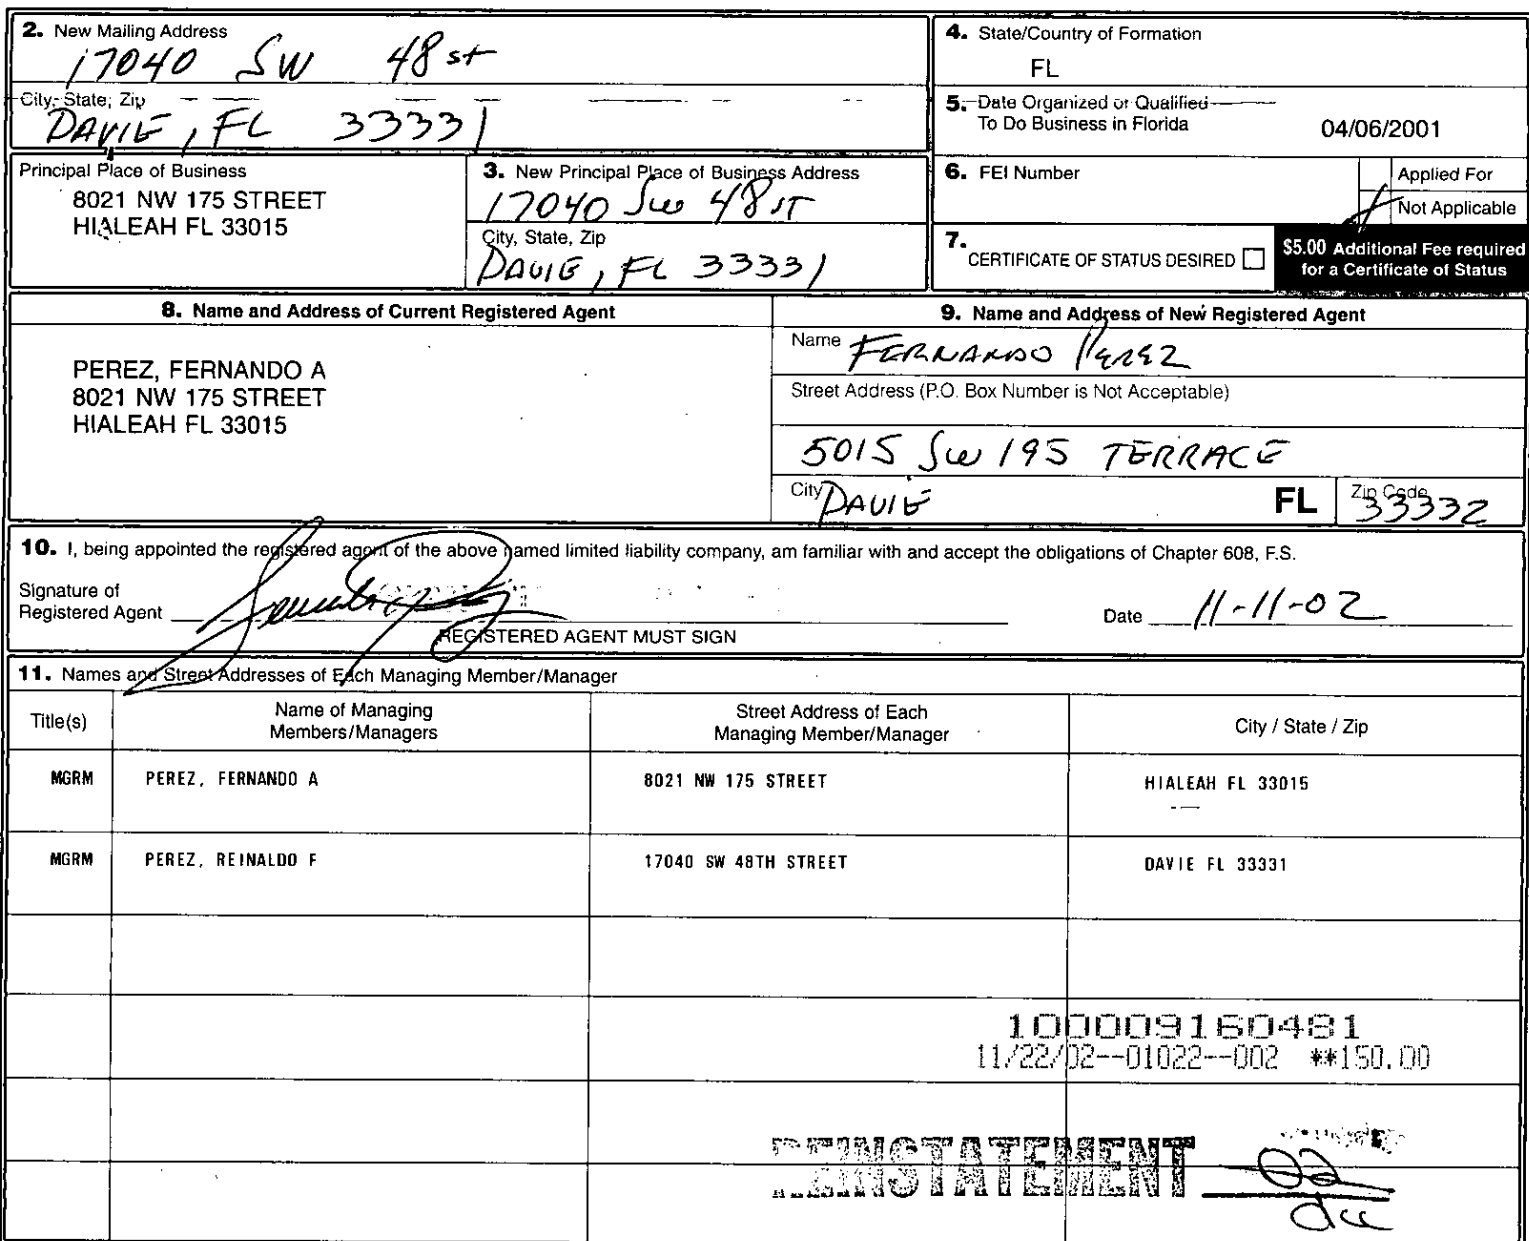 2. New Mailing Address
17040 SW 48 st
City, State, Zip
DAVIE, FL 33331
4. State/Country of Formation
FL
5. Date Organized or Qualified
To Do Business in Florida 04/06/2001
Principal Place of Business
8021 NW 175 STREET
HIALEAH FL 33015
3. New Principal Place of Business Address
17040 SW 48 ST
City, State, Zip
DAVIE, FL 33331
6. FEI Number
Applied For
Not Applicable
7. CERTIFICATE OF STATUS DESIRED
$5.00 Additional Fee required
for a Certificate of Status
8. Name and Address of Current Registered Agent
PEREZ, FERNANDO A
8021 NW 175 STREET
HIALEAH FL 33015
9. Name and Address of New Registered Agent
Name FERNANDO PEREZ
Street Address (P.O. Box Number is Not Acceptable)
5015 SW 195 TERRACE
City DAVIE FL Zip Code 33332
10. I, being appointed the registered agent of the above named limited liability company, am familiar with and accept the obligations of Chapter 608, F.S.
Signature of
Registered Agent
REGISTERED AGENT MUST SIGN
Date 11-11-02
11. Names and Street Addresses of Each Managing Member/Manager
Title(s) Name of Managing Members/Managers Street Address of Each Managing Member/Manager City / State / Zip
MGRM PEREZ, FERNANDO A 8021 NW 175 STREET HIALEAH FL 33015
MGRM PEREZ, REINALDO F 17040 SW 48TH STREET DAVIE FL 33331
100009160481
11/22/02--01022--002 **150.00
REINSTATEMENT 02